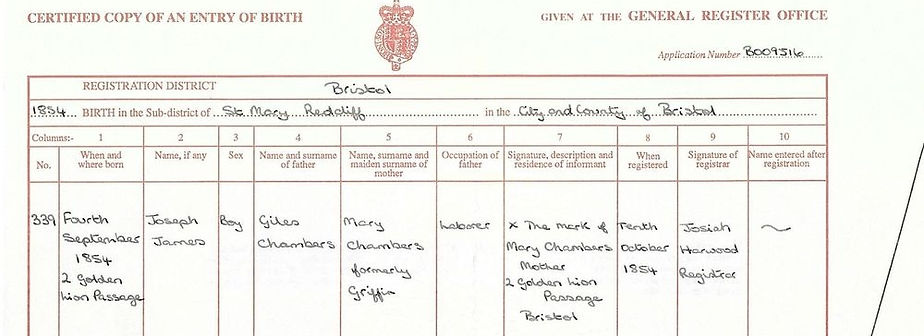 CERTIFIED COPY OF AN ENTRY OF BIRTH
GIVEN AT THE GENERAL REGISTER OFFICE
Application Number B009516
REGISTRATION DISTRICT Bristol
1854 BIRTH in the Sub-district of St Mary Redcliff in the City and County of Bristol
Columns:- 1 2 3 4 5 6 7 8 9 10
No.
When and
where born
Name, if any
Sex
Name and surname
of father
Name, surname and
maiden surname of
mother
Occupation of
father
Signature, description and
residence of informant
When
registered
Signature of
registrar
Name entered after
registration
339
Fourth
September
1854
2 Golden
Lion Passage
Joseph
James
Boy
Giles
Chambers
Mary
Chambers
formerly
Griffin
Laborer
x The mark of
Mary Chambers
Mother
2 Golden Lion
Passage
Bristol
Tenth
October
1854
Josiah
Harwood
Registrar